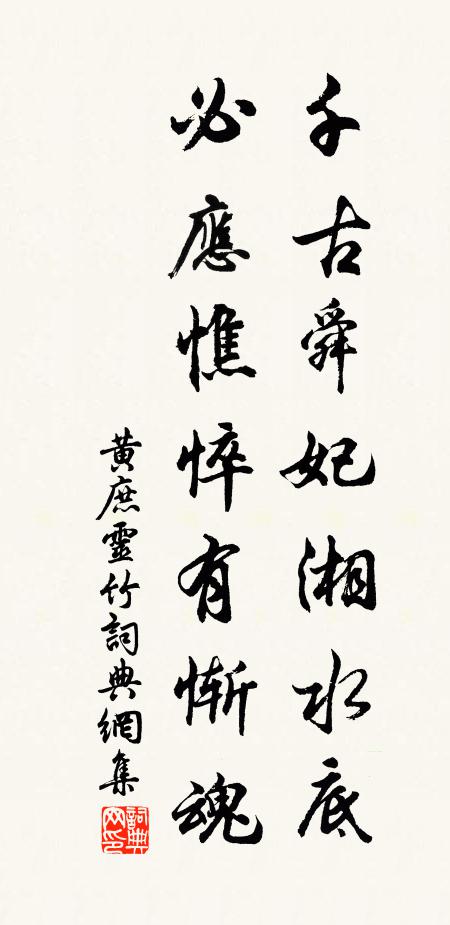 千古舜妃湘水底
必應憔悴有慚魂
黃庶靈竹詞典網集
詞典网印